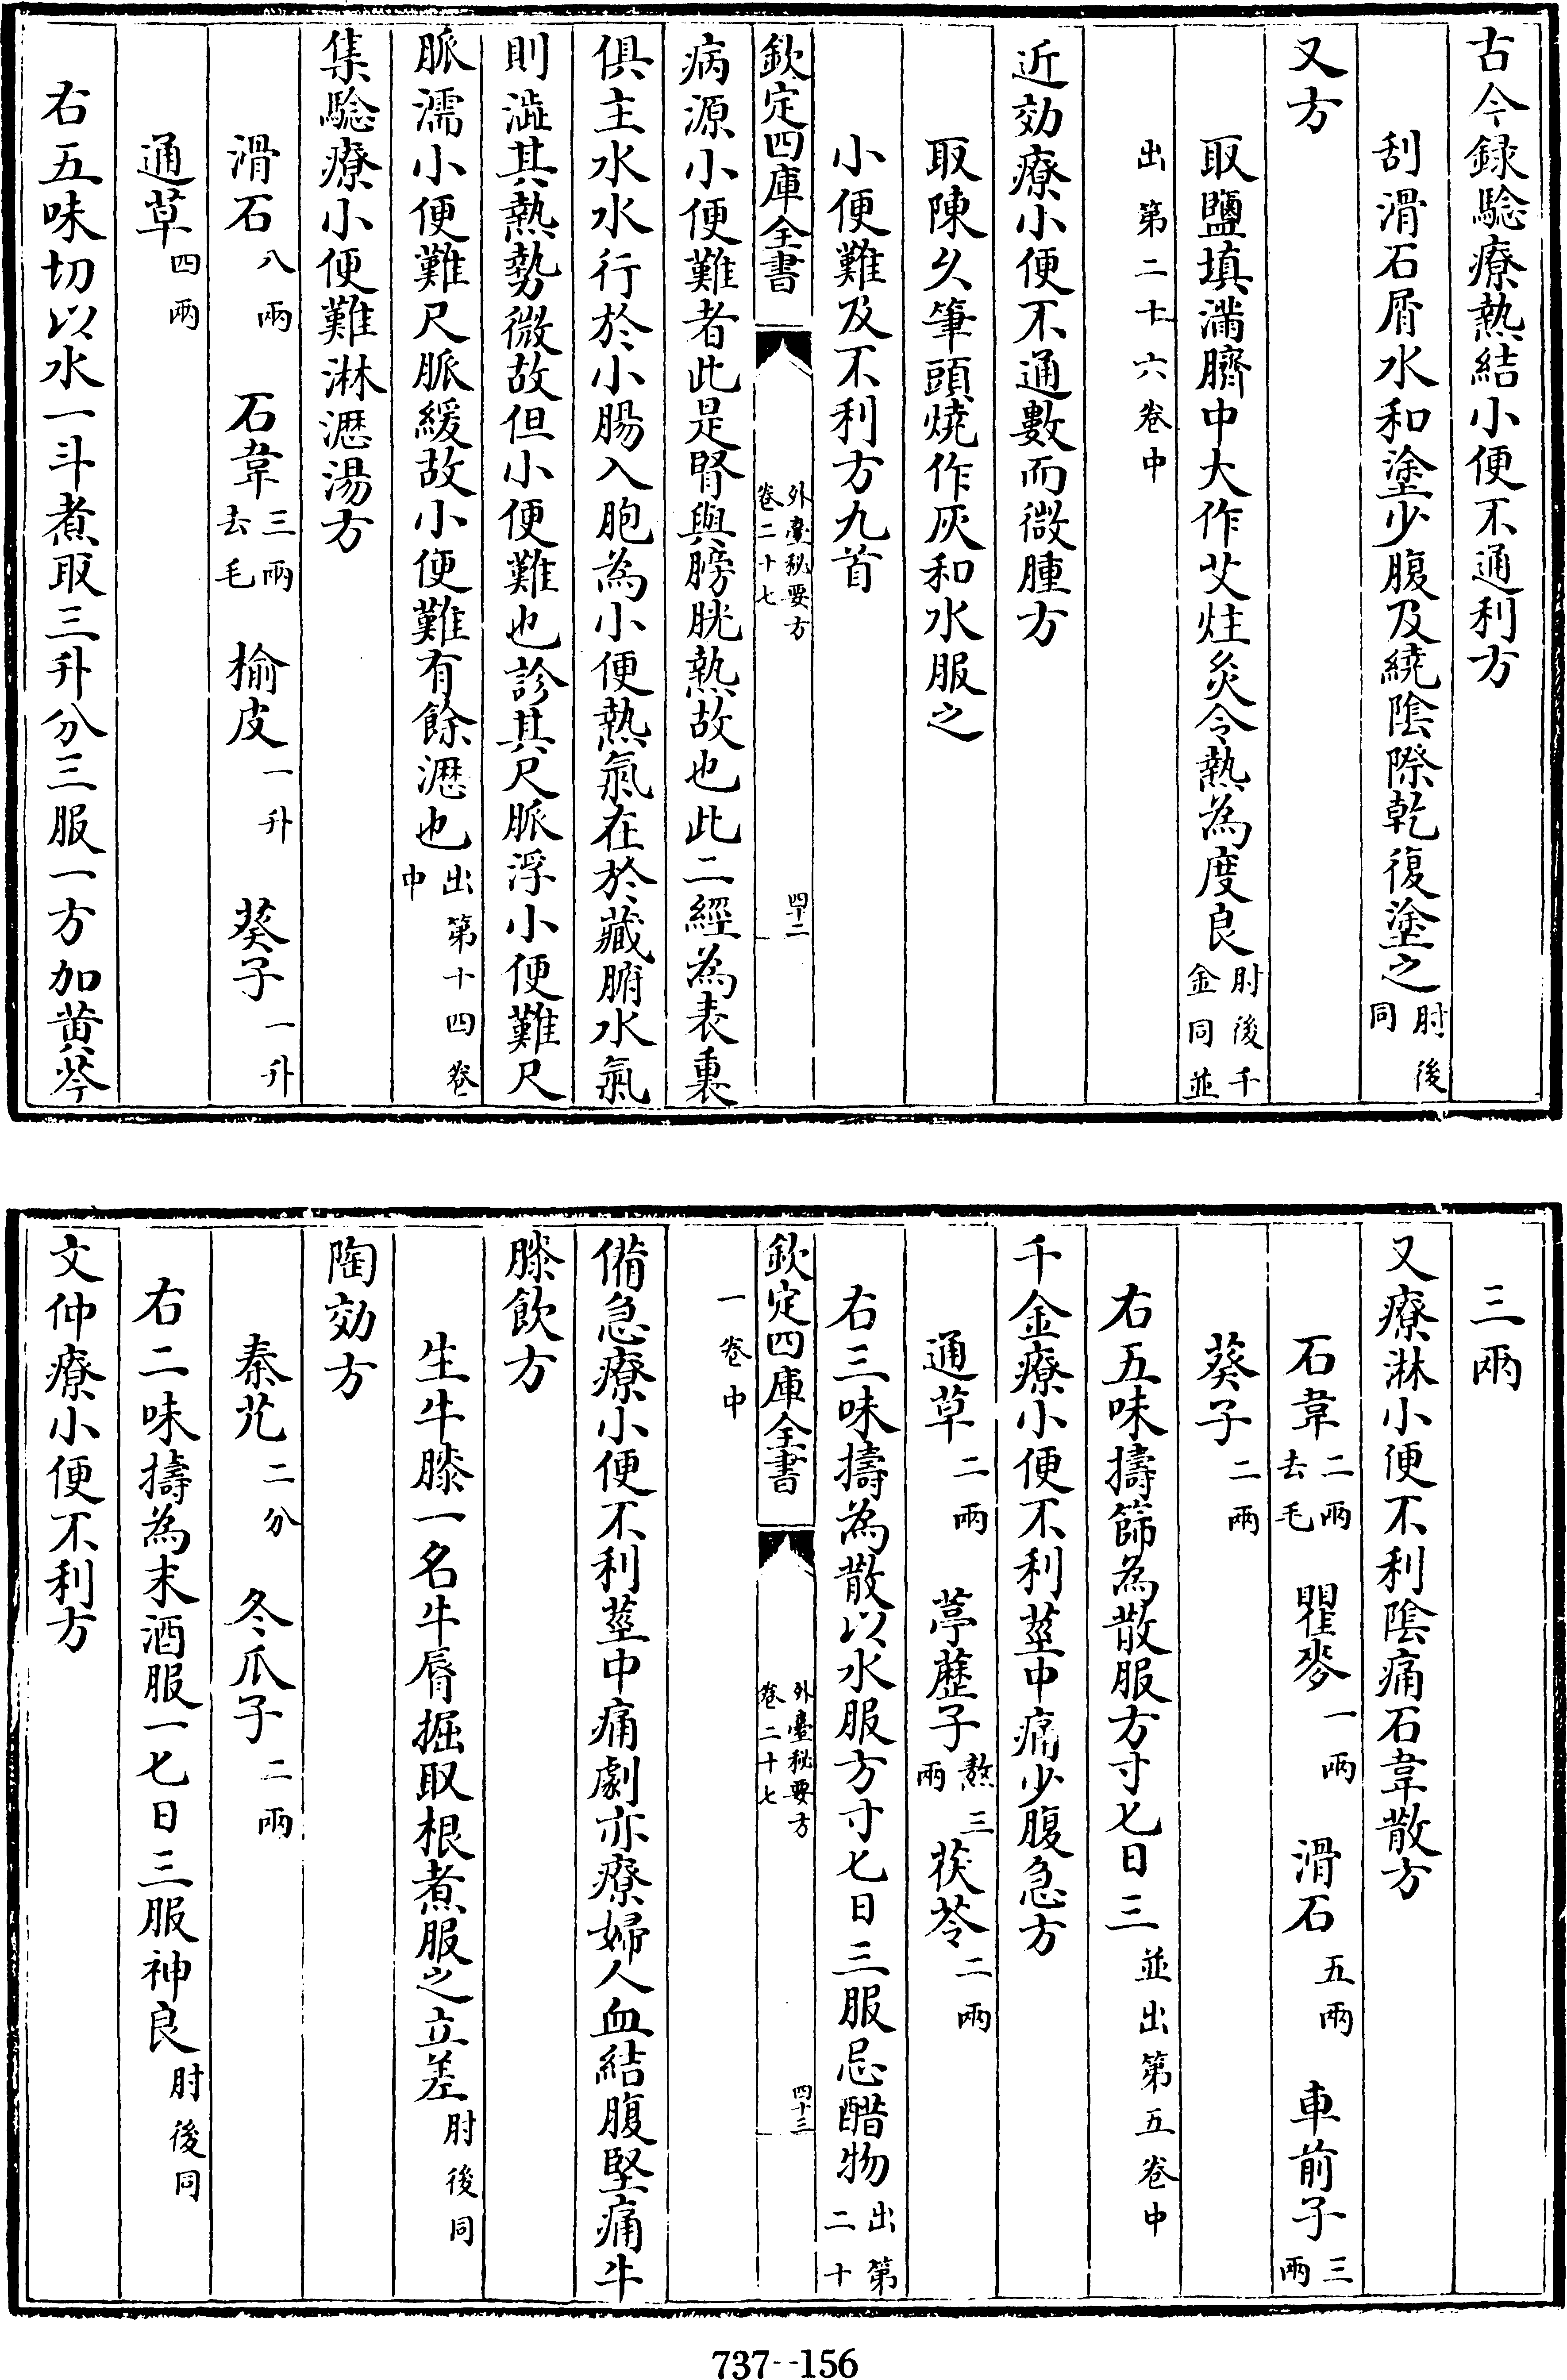 古今録驗療熱結小便不通利方
刮滑石屑水和塗少腹及繞陰際乾復塗之肘後同
又方
取鹽填滿臍中大作艾炷灸令熱為度良肘後千金同並
出第二十六卷中
近効療小便不通數而微腫方
取陳久筆頭燒作灰和水服之
小便難及不利方九首
欽定四庫全書 外臺秘要方卷二十七 四十二
病源小便難者此是腎與膀胱熱故也此二經為表裏
俱主水水行於小腸入胞為小便熱氣在於藏腑水氣
則澁其熱勢微故但小便難也診其尺脈浮小便難尺
脈濡小便難尺脈緩故小便難有餘瀝也出第十四卷中
集驗療小便難淋瀝湯方
滑石八兩 石韋三兩去毛 榆皮一升 葵子一升
通草四兩
右五味切以水一斗煮取三升分三服一方加黄芩
三兩
又療淋小便不利陰痛石韋散方
石韋二兩去毛 瞿麥一兩 滑石五兩 車前子三兩
葵子二兩
右五味擣篩為散服方寸匕日三並出第五卷中
千金療小便不利莖中痛少腹急方
通草二兩 葶藶子熬三兩 茯苓二兩
右三味擣為散以水服方寸匕日三服忌醋物出第二十
欽定四庫全書 外臺秘要方卷二十七 四十三
一卷中
備急療小便不利莖中痛劇亦療婦人血結腹堅痛牛
膝飲方
生牛膝一名牛脣掘取根煮服之立差肘後同
陶効方
秦艽二分 冬瓜子二兩
右二味擣為末酒服一匕日三服神良肘後同
文仲療小便不利方
737--156